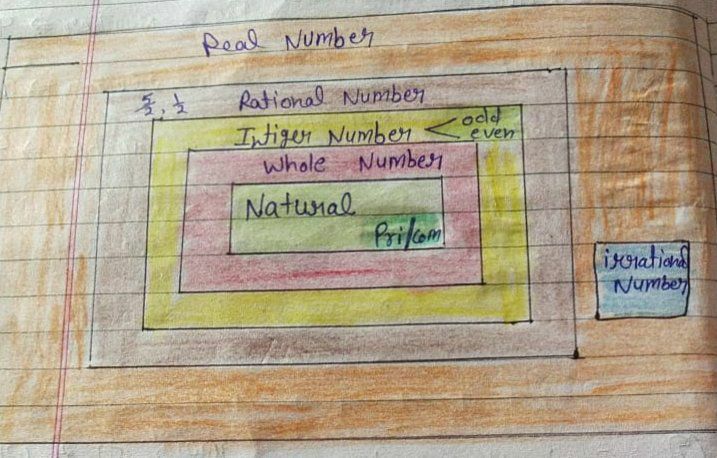 Real Number
5/2, 1/2 Rational Number
Intiger Number < odd
even
Whole Number
Natural
Pri/com
irrational
Number